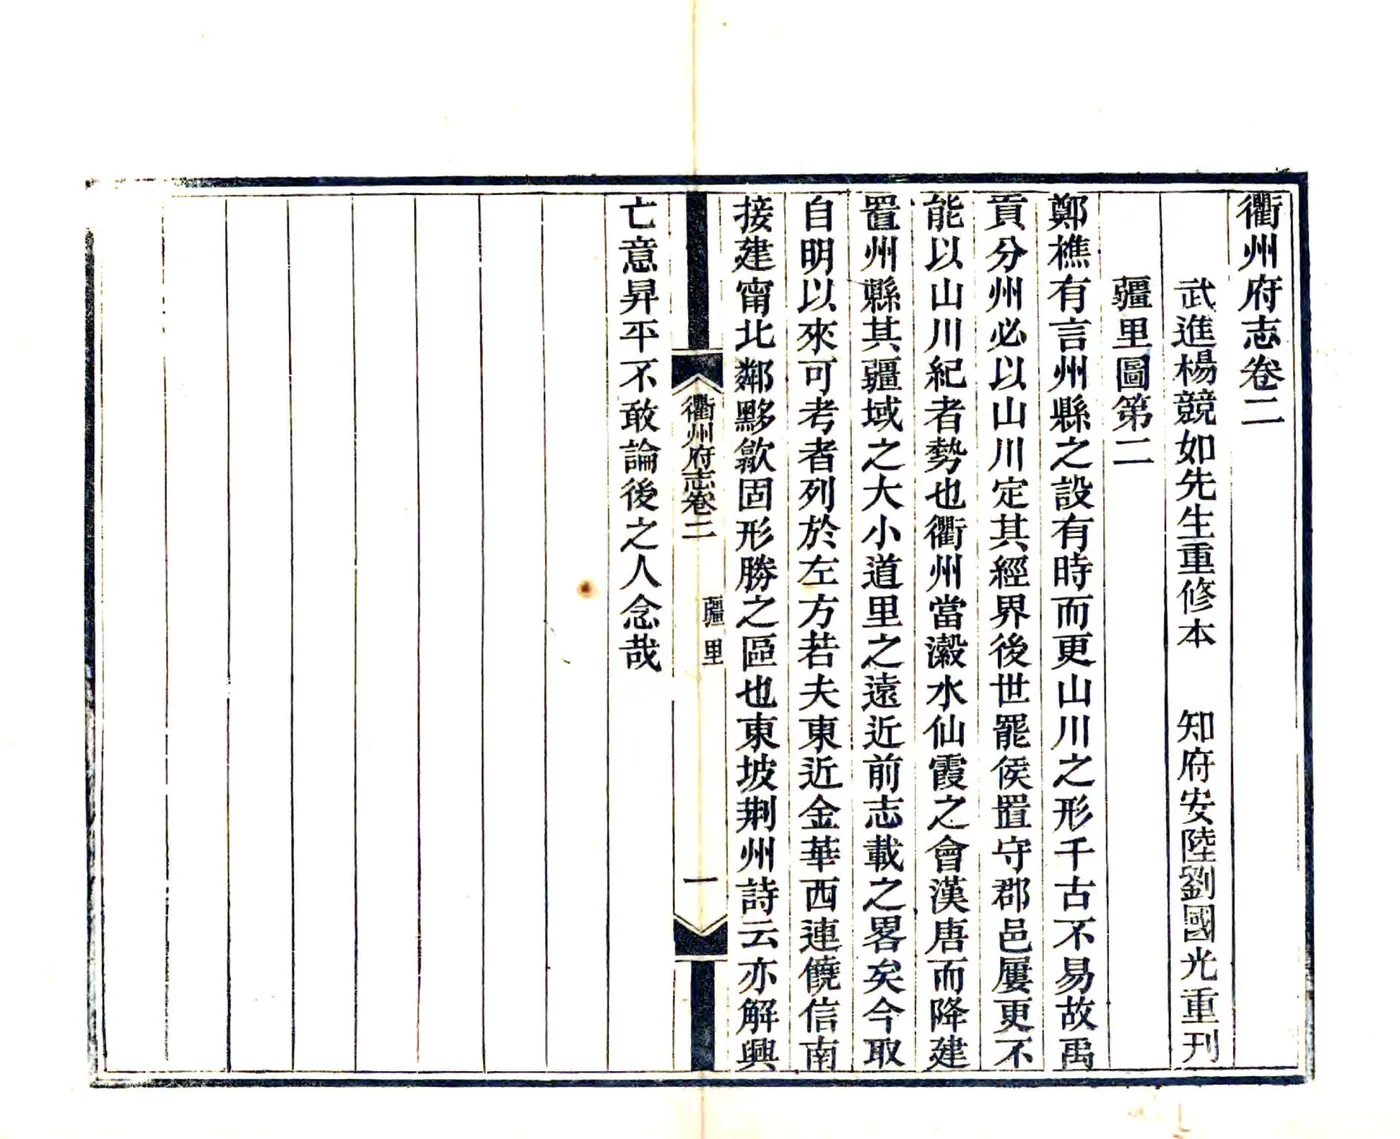 衢州府志卷二
武進楊競如先生重修本　知府安陸劉國光重刊
疆里圖第二
鄭樵有言州縣之設有時而更山川之形千古不易故禹
貢分州必以山川定其經界後世罷侯置守郡邑屢更不
能以山川紀者勢也衢州當瀫水仙霞之會漢唐而降建
置州縣其疆域之大小道里之遠近前志載之畧矣今取
自明以來可考者列於左方若夫東近金華西連饒信南
接建甯北鄰黟歙固形勝之區也東坡荆州詩云亦解興
衢州府志卷二　疆里　一
亡意昇平不敢論後之人念哉